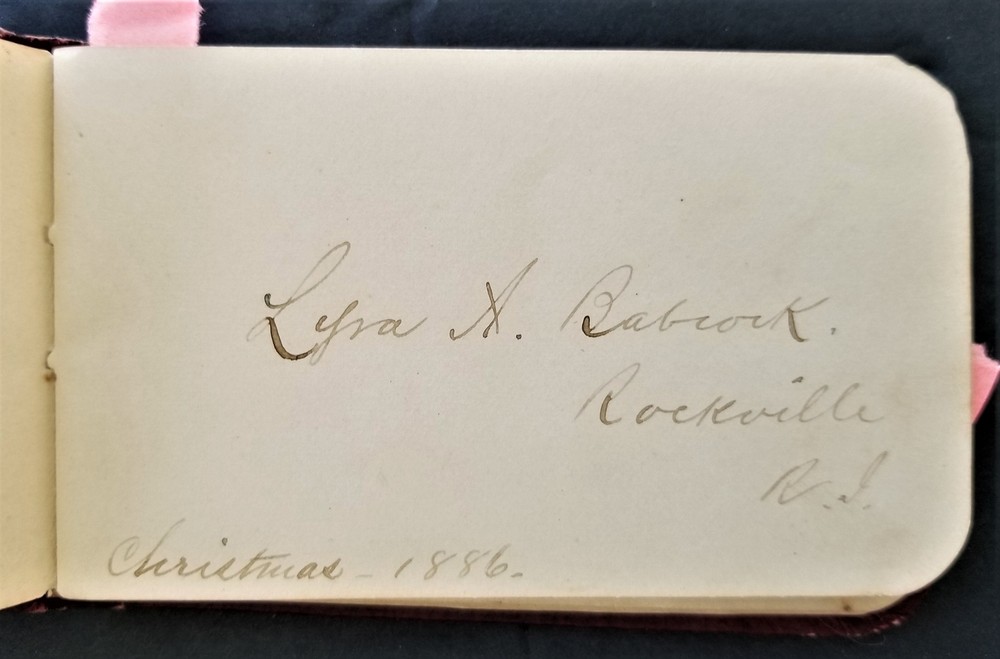 Lyra A. Babcock.
Rockville
R.I.
Christmas - 1886.